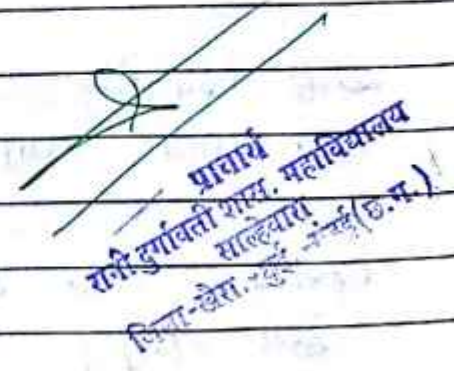 प्राचार्य
रानी दुर्गावती शास. महाविद्यालय
साल्हेवारा
जिला-खैरा. (छ.ग.)